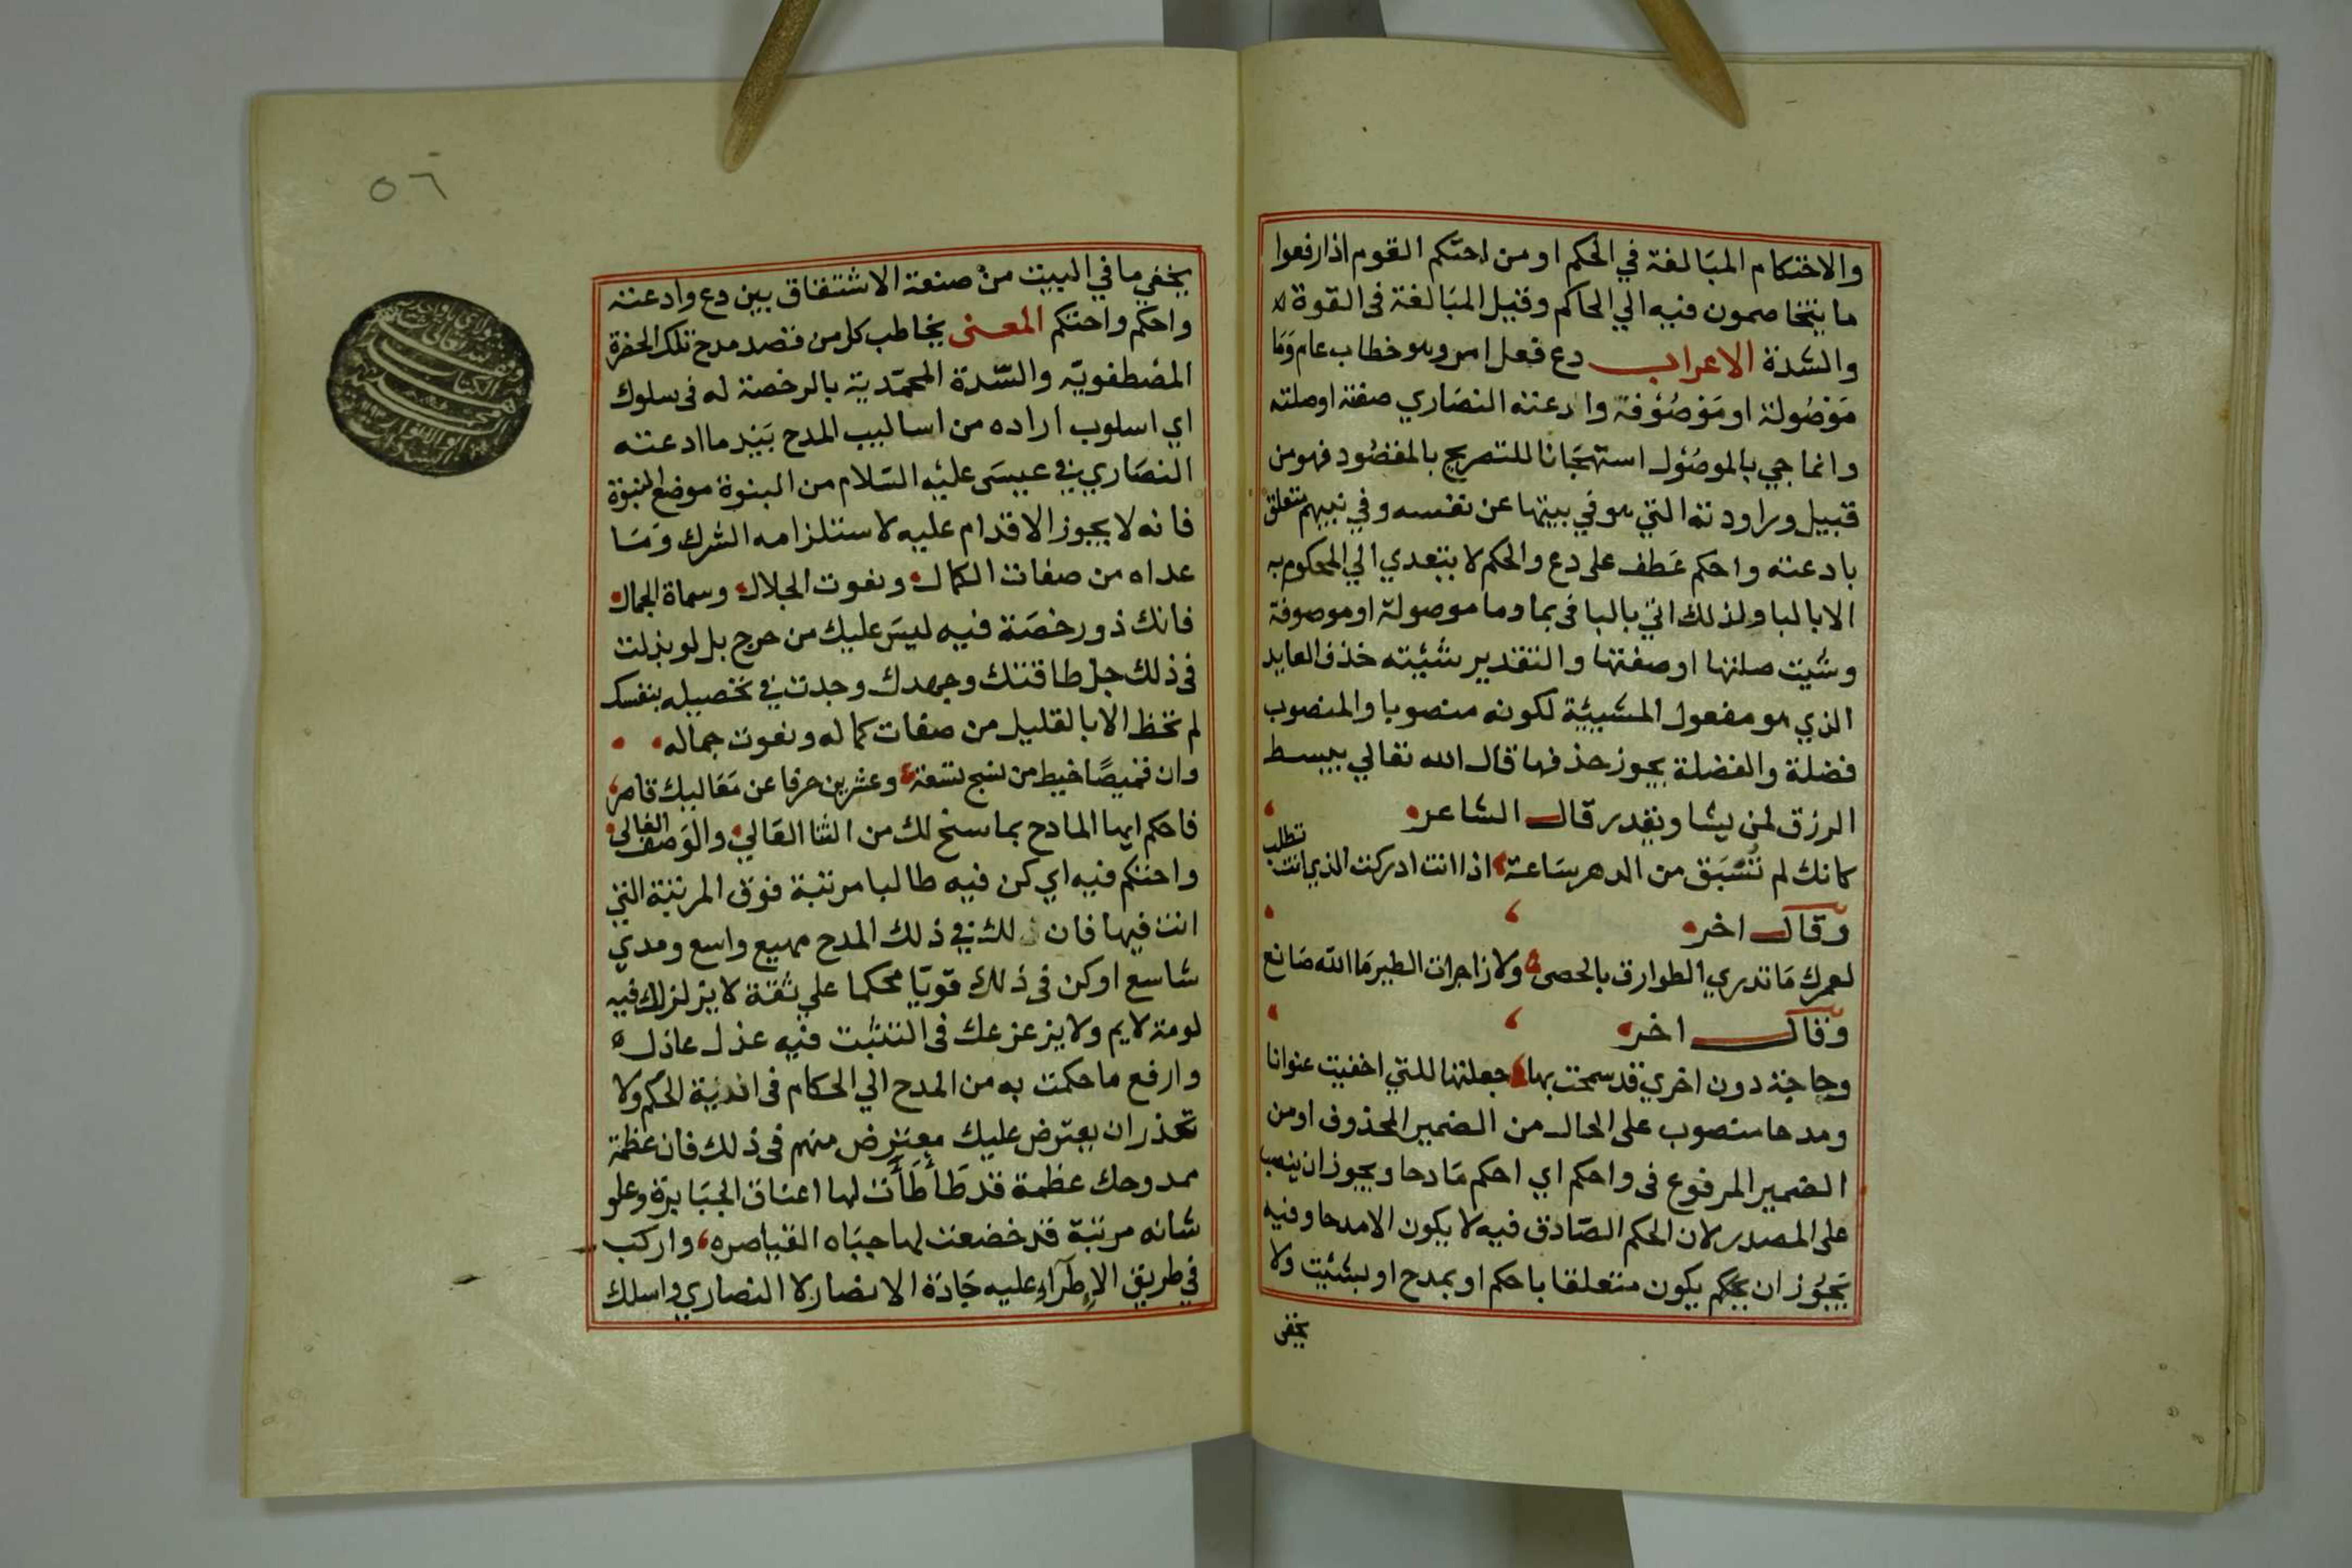 والاحتكام المبالغة في الحكم او من احتكم القوم اذا رفعوا
ما يتخاصمون فيه الي الحاكم وقيل المبالغة فى القوة
والشدة الاعراب دع فعل امر وهو خطاب عام وَمَا
مَوْصُولة او مَوْصُوْفة وادعته النصَاري صفة او صلته
وانما جي بالموصُول استهجَانا للتصريح بالمقصُود فهو من
قبيل وراودته التي هو في بيتها عن نفسه وفي نبيهم متعلق
بادعته واحكم عَطف على دع والحكم لا يتعدي الي المحكوم به
الا بالبا ولذلك اتي بالبا فى بما وما موصولة او موصوفة
وشيت صلتها او صفتها والتقدير شيئته حذف العايد
الذي هو مفعول المشيئة لكونه منصوبا والمنصوب
فضلة والفضلة يجوز حذفها قال الله تعالي يبسط
الرزق لمن يشا ويقدر قال الشاعر
كانك لم تُسْبَق من الدهر سَاعة اذا انت ادركت الذي انت تطلب
وقال اخر
لعمرك مَا تدري الطوارق بالحصى ولا زاجرات الطير مَا الله صَانع
وقال اخر
وحاجة دون اخري قد سمحت بها جعلتها للتي اخفيت عنوانا
ومدحا منصوب على الحال من الضمير المحذوف او من
الضمير المرفوع فى واحكم اي احكم مَادحا ويجوز ان ينصب
على المصدر لان الحكم الصَادق فيه لا يكون الا مدحا وفيه
يَجُوز ان يكون متعلقا باحكم او بمدح او بشئيت ولا
يخفى
٥٦
يخفي ما في البيت من صنعة الاشتقاق بين دع وادعته
واحكم واحتكم المعنى يخاطب كل من قصد مدح تلك الحضرة
المصْطفويّه والسّدة المحمّدية بالرخصة له فى سلوك
اي اسلوب اراده من اساليب المدح بَيْد ما ادعته
النصَاري في عيسَى عليْه السَلام من البنوة موضع النبوة
فانه لا يجوز الاقدام عليه لاستلزامه الشرك وَمَا
عداه من صفات الكمال ونعوت الجلال وسماة الجمال
فانك ذو رخصَة فيه ليسَ عليك من حرج بل لو بذلت
فى ذلك جل طاقتك وجهدك وجدت في تحصيله بنفسك
لم تحظ الا بالقليل من صفات كماله ونعوت جماله
وان قميصًا خيط من نسج تسعة وعشرين حرفا عن مَعَاليك قاصر
فاحكم ايها المادح بما سنح لك من الثنا العَالي والوَصف الغالى
واحتكم فيه اي كن فيه طالبا مرتبة فوق المرتبة التي
انت فيها فان لك في ذلك المدح مهيع واسع ومدي
شاسع او كن فى ذلك قويّا محكما علي ثقة لا يزلزلك فيه
لومة لايم ولا يزعزعك فى التثبت فيه عذل عاذل
وارفع ما حكمت به من المدح الي الحكام فى اندَية الحكم ولا
تحذر ان يعترض عليك معترض منهم فى ذلك فان عظمة
ممدوحك عظمة قد طَأطَأَت لها اعناق الجبَابرة وعلو
شانه مرتبة قد خضعت لها جبَاه القياصره واركب
في طريق الإطرَآءِ عليه جَادَة الانصَار لا النصاري واسلك